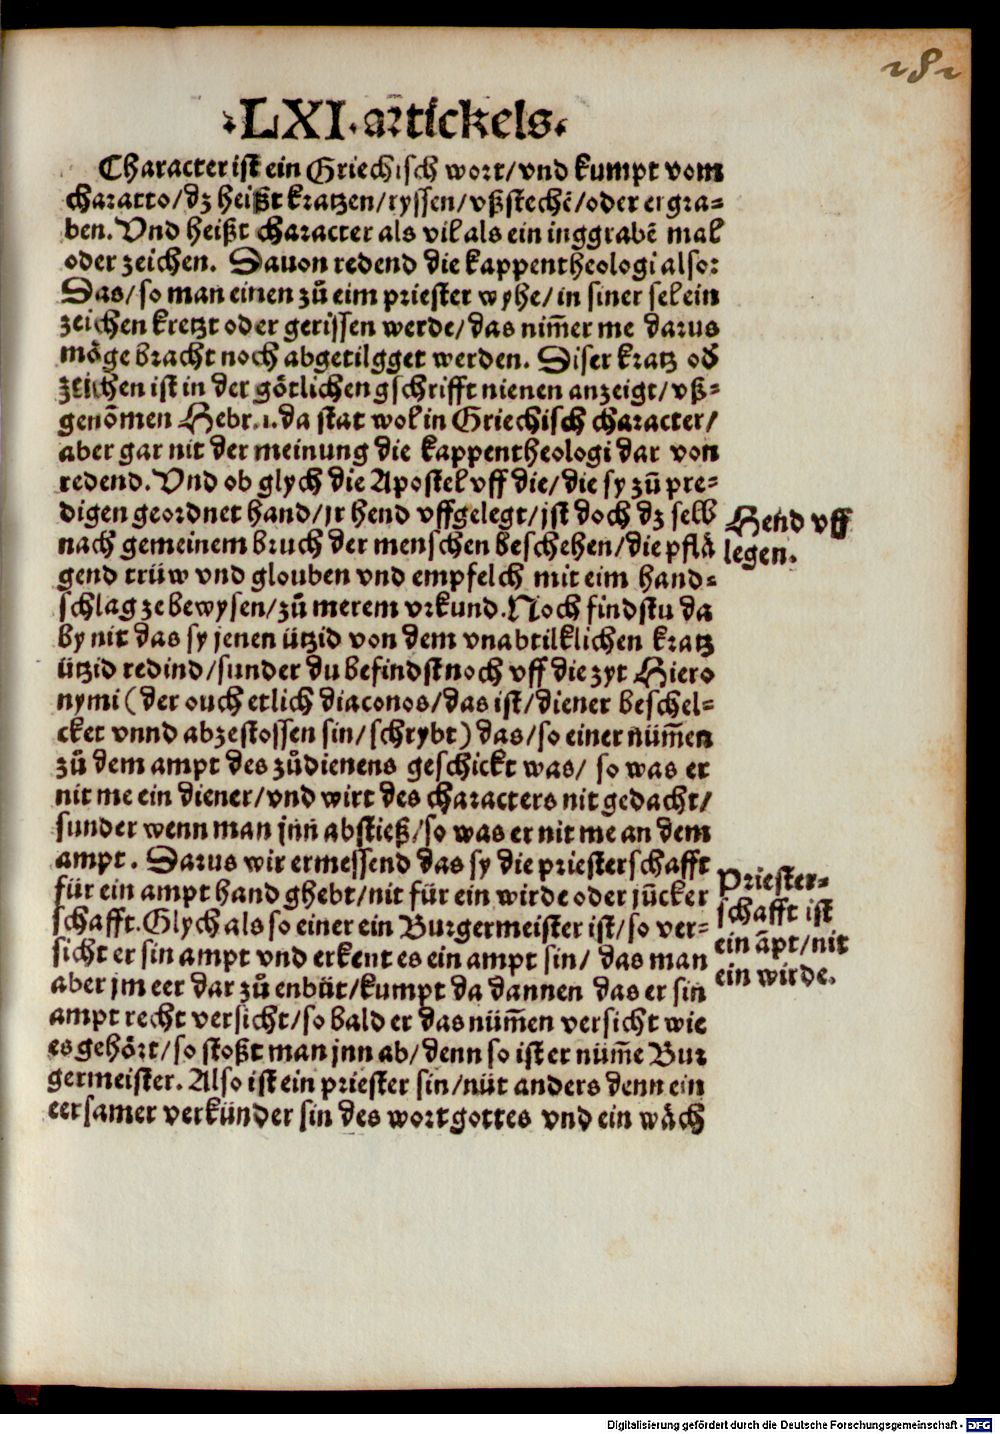 282
·LXI· artickels·
Character ist ein Griechisch wort/vnd kumpt vom
charatto/dz heißt kratzen/ryssen/vßstechē/oder ergra-
ben. Vnd heißt character als vil als ein inggrabē mal
oder zeichen. Dauon redend die kappentheologi also:
Das/so man einen zů eim priester wyhe/in siner sel ein
zeichen kretzt oder gerissen werde/das nim̄er me darus
möge bracht noch abgetilgget werden. Diser kratz od̕
zeichen ist in der götlichen gschrifft nienen anzeigt/vß-
genōmen Hebr.1.da stat wol in Griechisch character/
aber gar nit der meinung die kappentheologi dar von
redend. Vnd ob glych die Apostel vff die/die sy zů pre-
digen geordnet hand/jr hend vffgelegt/jst doch dz selb
Hend vff
legen.
nach gemeinem bruch der menschen beschehen/die pflä
gend trüw vnd glouben vnd empfelch mit eim hand-
schlag ze bewysen/zů merem vrkund. Noch findstu da
by nit das sy jenen ützid von dem vnabtilklichen kratz
ützid redind/sunder du befindst noch vff die zyt Hiero
nymi (der ouch etlich diaconos/das ist/diener beschel-
cket vnnd abzestossen sin/schrybt) das/so einer nüm̄en
zů dem ampt des zůdienens geschickt was/ so was er
nit me ein diener/vnd wirt des characters nit gedacht/
sunder wenn man jnn abstieß/so was er nit me an dem
ampt. Darus wir ermessend das sy die priesterschafft
für ein ampt hand ghebt/nit für ein wirde oder jūcker
schafft. Glych als so einer ein Burgermeister ist/so ver-
Priester-
schafft ist
ein āpt/nit
ein wirde.
sicht er sin ampt vnd erkent es ein ampt sin/ das man
aber jm eer dar zů enbüt/kumpt da dannen das er sin
ampt recht versicht/so bald er das nüm̄en versicht wie
es gehört/so stoßt man jnn ab/denn so ist er nüm̄e Bur
germeister. Also ist ein priester sin/nüt anders denn ein
eersamer verkünder sin des wort gottes vnd ein wäch
Digitalisierung gefördert durch die Deutsche Forschungsgemeinschaft - DFG